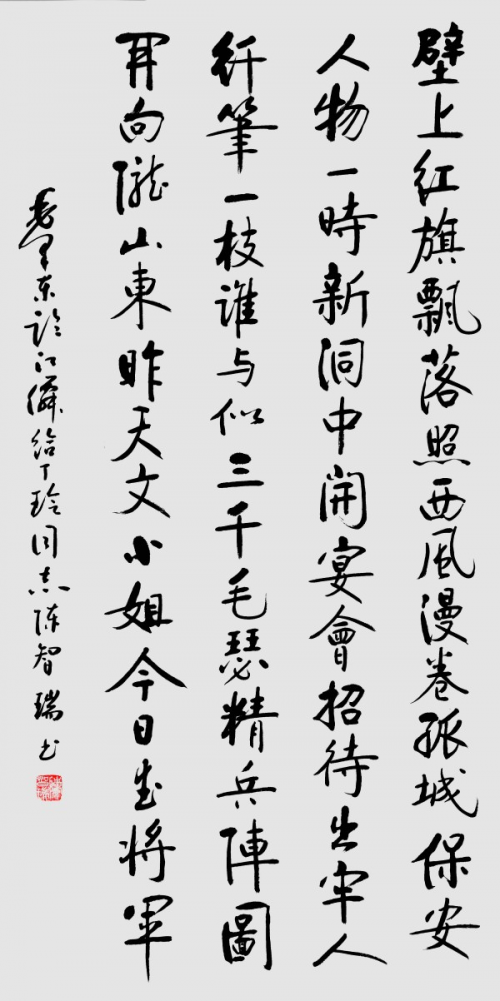 壁上红旗飄落照西风漫卷孤城保安
人物一時新洞中開宴會招待出牢人
纤筆一枝谁与似三千毛瑟精兵陣圖
開向隴山東昨天文小姐今日武将軍
毛泽东临江僊给丁玲同志陈智瑞书